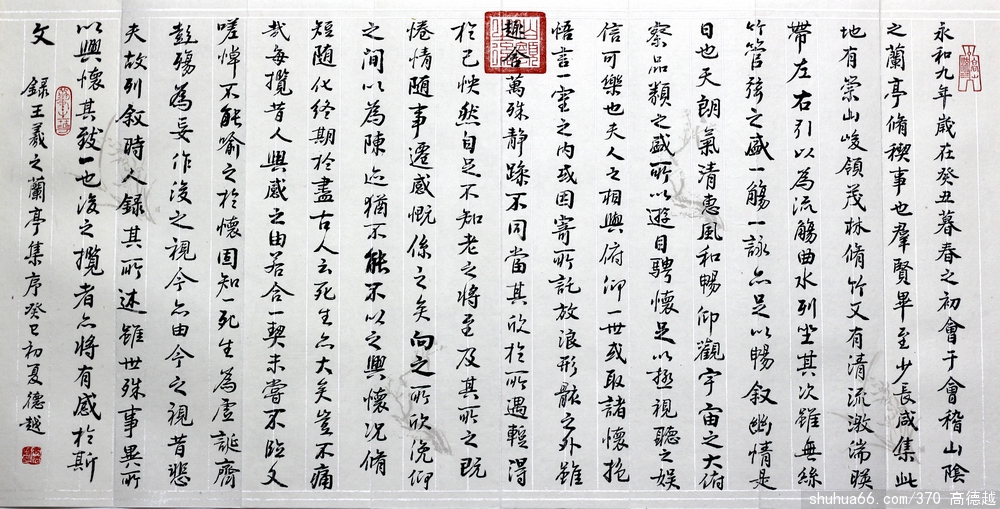 永和九年歲在癸丑暮春之初會于會稽山陰
之蘭亭脩稧事也羣賢畢至少長咸集此
地有崇山峻領茂林脩竹又有清流激湍暎
帶左右引以為流觴曲水列坐其次雖無絲
竹管弦之盛一觴一詠亦足以暢敘幽情是
日也天朗氣清惠風和暢仰觀宇宙之大俯
察品類之盛所以遊目騁懷足以極視聽之娛
信可樂也夫人之相與俯仰一世或取諸懷抱
悟言一室之內或因寄所託放浪形骸之外雖
趣舍萬殊靜躁不同當其欣於所遇輕得
於己怏然自足不知老之將至及其所之既
惓情隨事遷感慨係之矣向之所欣俛仰
之間以為陳迹猶不能不以之興懷況脩
短隨化終期於盡古人云死生亦大矣豈不痛
哉每攬昔人興感之由若合一契未嘗不臨文
嗟悼不能喻之於懷固知一死生為虛誕齊
彭殤為妄作後之視今亦由今之視昔悲
夫故列敘時人錄其所述雖世殊事異所
以興懷其致一也後之攬者亦將有感於斯
文 錄王羲之蘭亭集序癸巳初夏德越
shuhua66.com/370 高德越